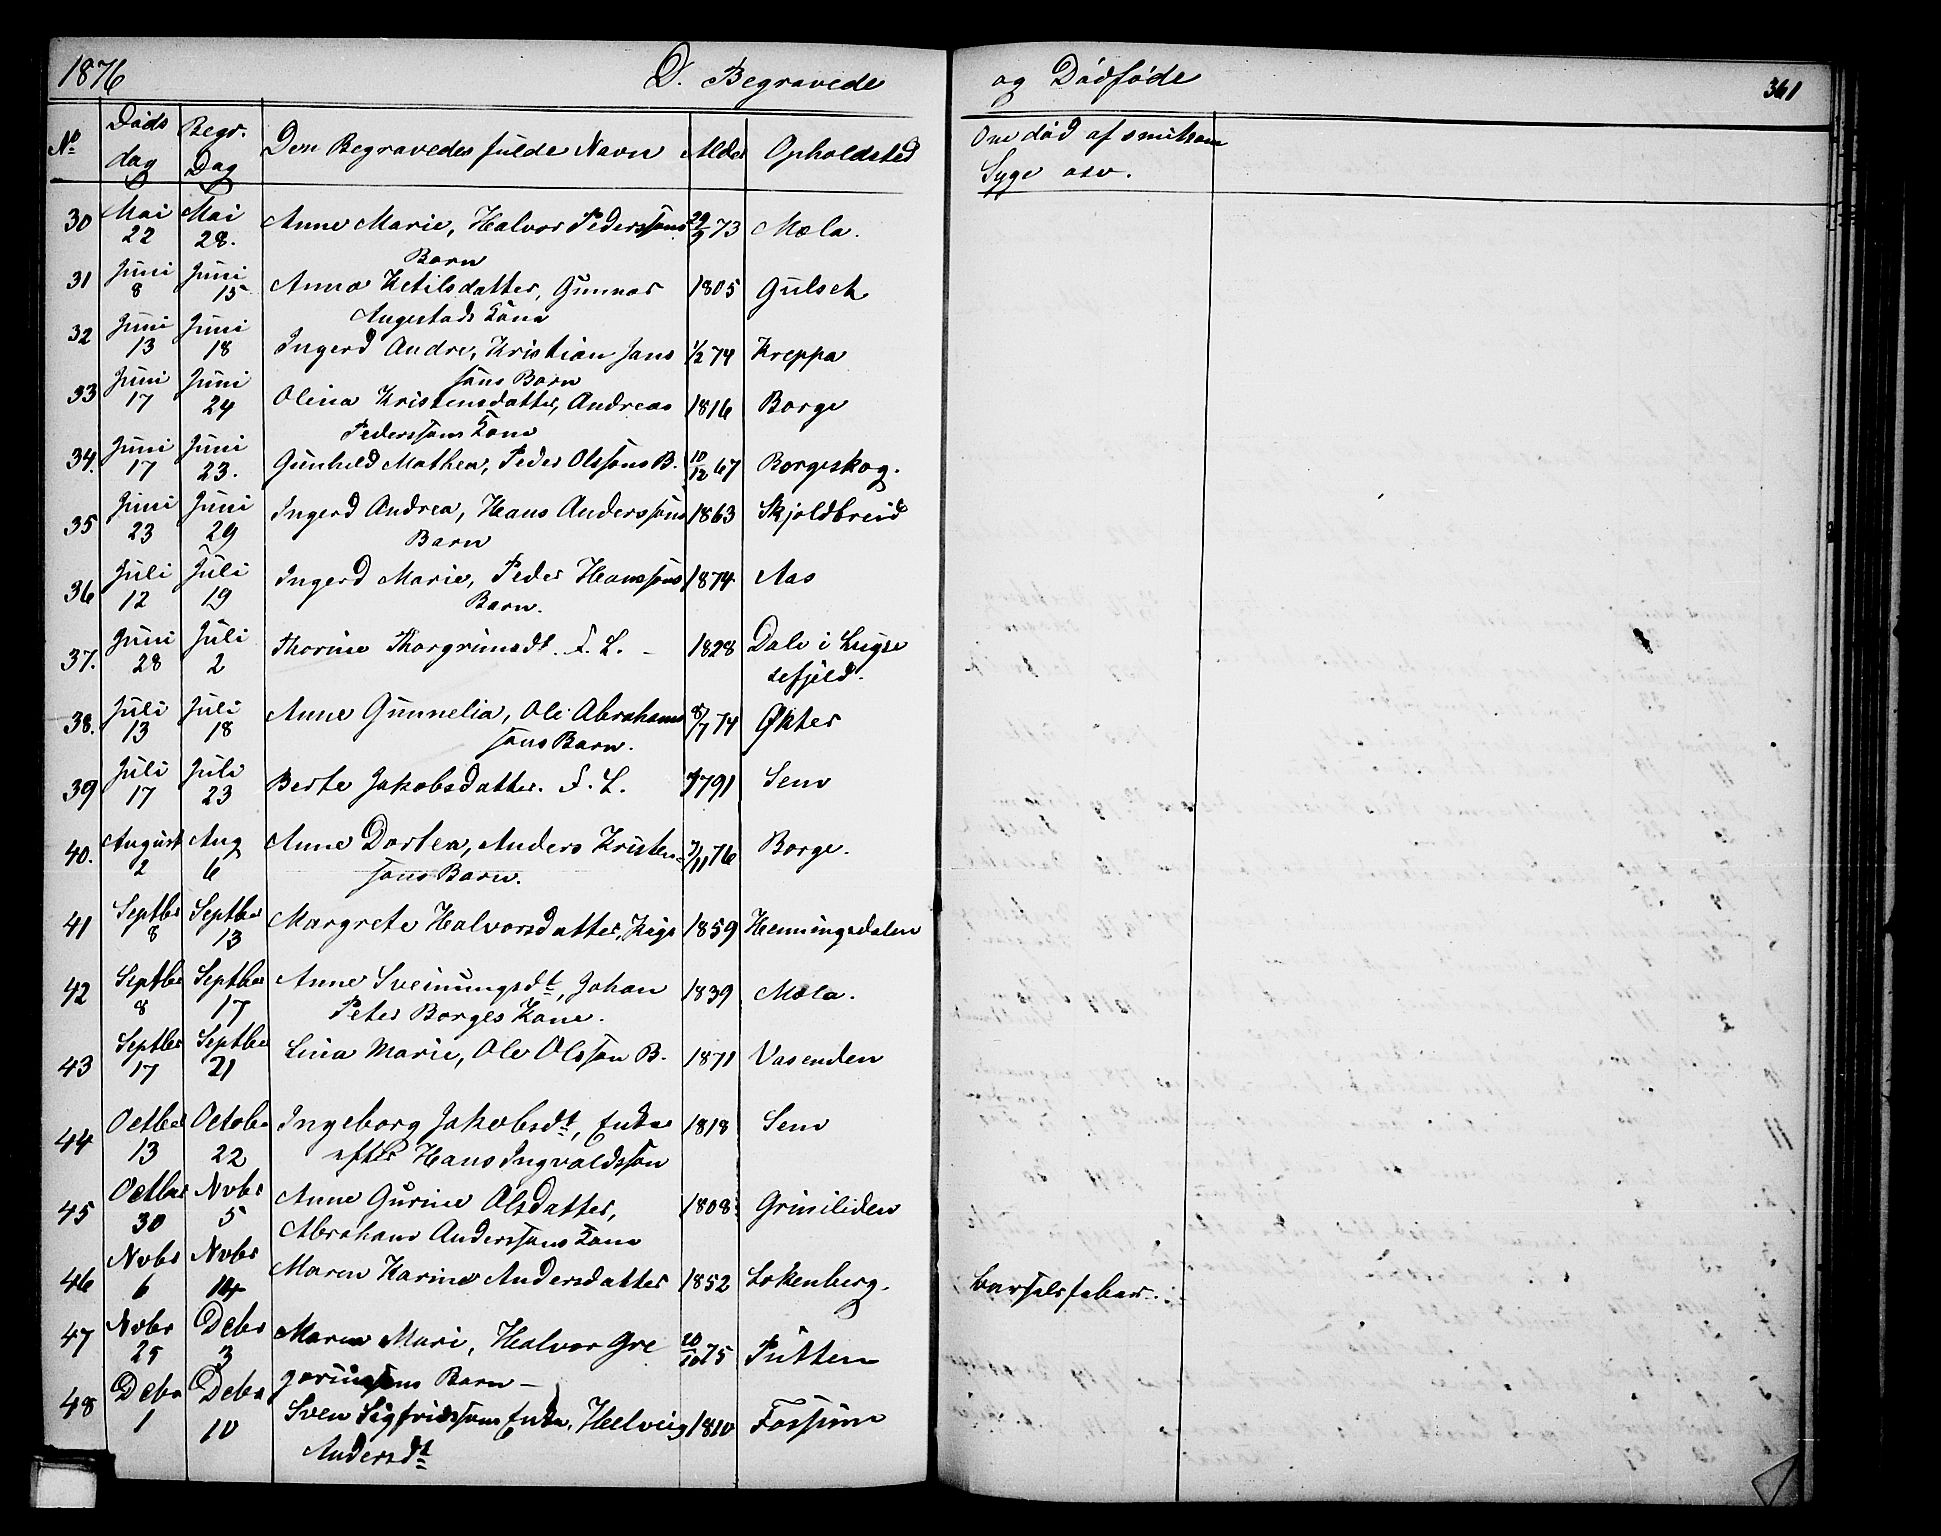 1876 D. Begravede og Dødføde 361
No Døds dag Begr. Dag Den Begravedes fulde Navn Alder Opholdsted Om død af smitsom
Syge osv.
30 Mai 22 Mai 28. Anne Marie, Halvor Pederssøns 29/9 73 Mæla.
Barn
31 Juni 8 Juni 15 Anna Ketilsdatter, Gunnar 1805 Gulset
Augestads Kone
32 Juni 13 Juni 18 Ingerd Andre, Kristian Jans 1/2 74 Kreppa
søns Barn
33 Juni 17 Juni 24 Olina Kristensdatter, Andreas 1816 Borge
Pederssøns Kone
34. Juni 17 Juni 23. Gunhild Mathea, Peder Olssøns B. 10/12 67 Borgeskog.
35 Juni 23 Juni 29 Ingerd Andrea, Hans Anderssøns 1863 Skjoldbreid
Barn
36 Juli 12 Juli 19 Ingerd Marie, Peder Hanssøns 1874 Aas
Barn.
37. Juni 28 Juli 2 Thorine Thorgrimsdt. F. L. - 1828 Dale i Luxe
sefjeld.
38. Juli 13 Juli 18 Anne Gunnelia, Ole Abrahams 8/7 74 Økter
søns Barn.
39 Juli 17 Juli 23 Berte Jakobsdatter. F. L. 1791 Sem
40. August 2 Aug 6 Anne Dortea, Anders Kristen- 7/11 76 Borge.
søns Barn.
41 Septbr 8 Septbr 13 Margrete Halvorsdatter, Pige 1859 Henningsdalen
42 Septbr 8 Septbr 17 Anne Sveinungsdt, Johan 1839 Mæla.
Peter Borges Kone.
43 Septbr 17 Septbr 21 Lina Marie, Ole Olssøn B. 1871 Vasenden
44 Octber 13 Octobr 22 Ingeborg Jakobsdt, Enke 1818 Sem
efter Hans Ingvaldssøn
45 Octber 30 Novbr 5 Anne Gurine Olsdatter, 1808 Griniliden
Abraham Anderssøns Kone
46 Novbr 6 Novbr 14 Maren Karine Andersdatter 1852 Lokenberg. Barselsfeber.
47 Novbr 25 Debr 3 Maren Mari, Halvor Gre 20/10 75 Putten
goriussøns Barn -
48 Debr 1 Debr 10 Sven Sigfridssøns Enke, Helvig 1810 Fossum
Andersdt